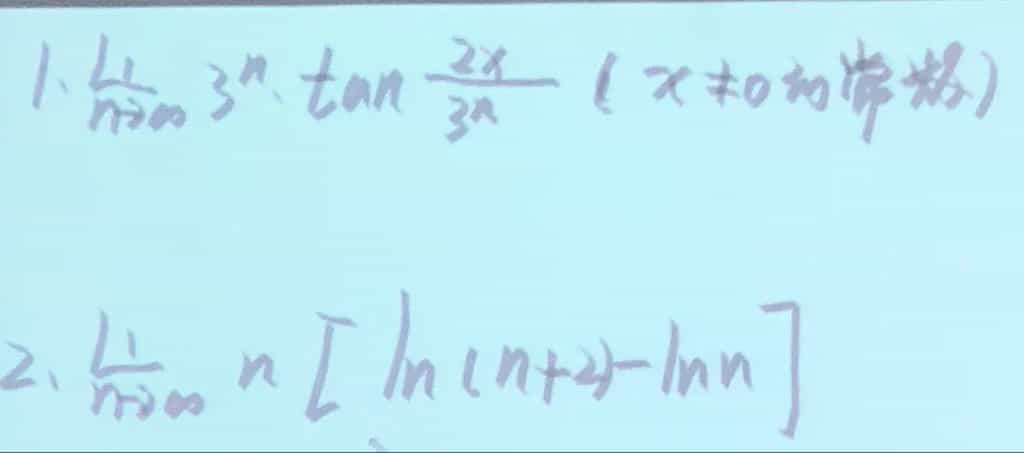 1. lim_{n→∞} 3^n · tan \frac{2x}{3^n} (x≠0的常数)
2. lim_{n→∞} n [ln(n+2)-ln n]